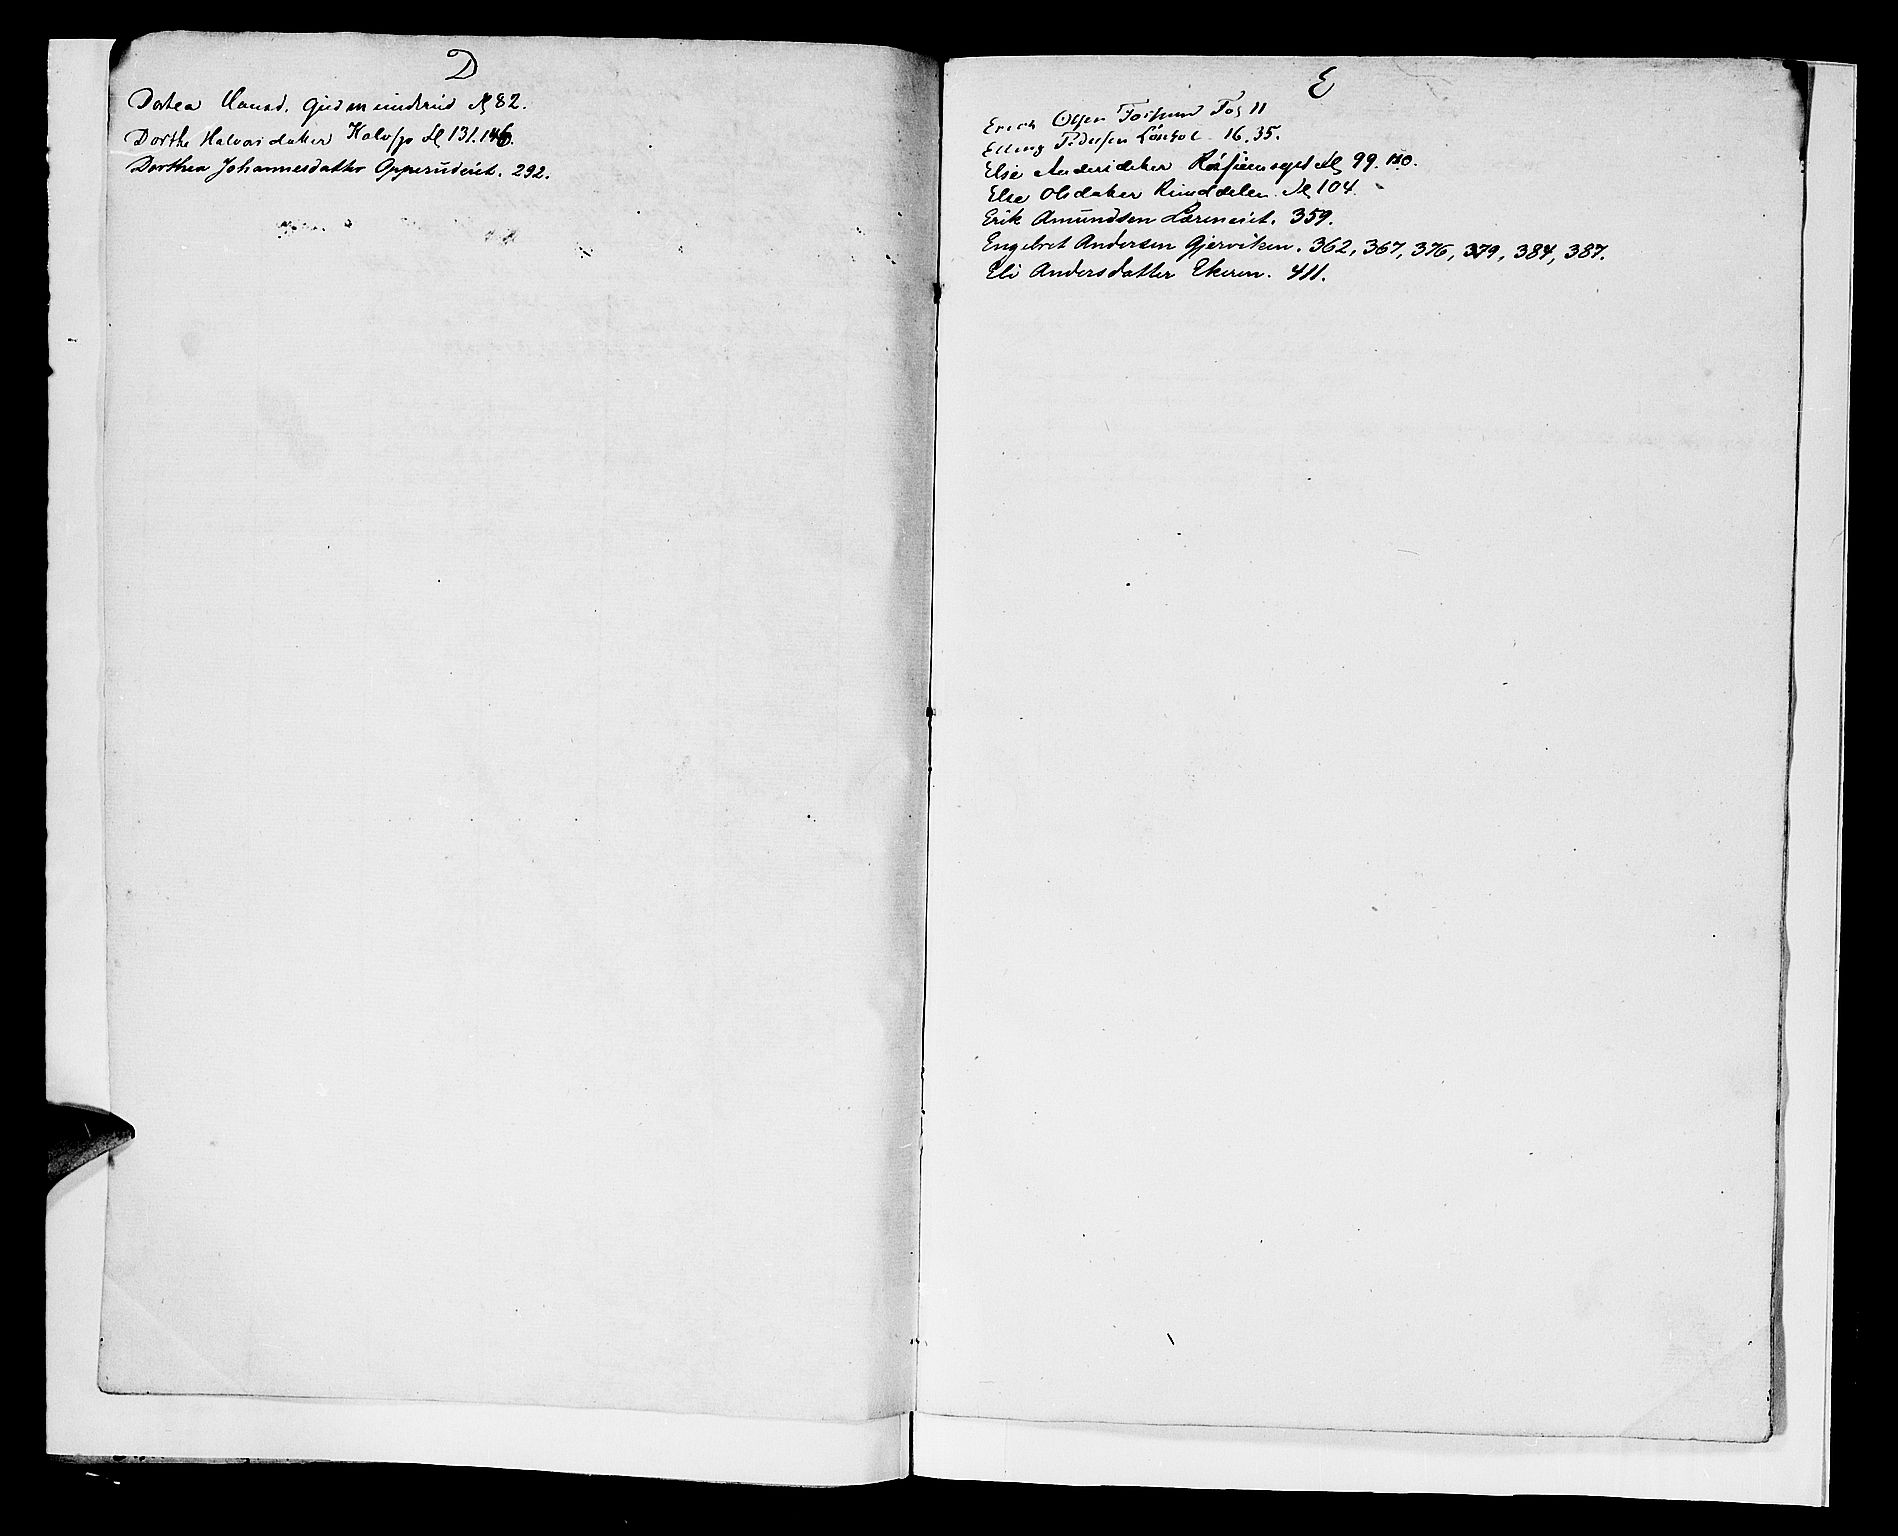 D
Dortea Hansd. Gudmunderud № 82.
Dorthe Halvorsdatter Kalv № 131. 146.
Dorthea Johannesdatter Opperudeiet. 292.
E
Erich Olsen Fol 11
Elling Pedersen 16. 35.
Else Andersdatter № 99. 110.
Else Olsdatter Rinddelen № 104.
Erik Amundsen Læreneiet. 359.
Engebret Andersen Gjerviken. 362, 367, 376, 379, 384, 387.
Eli Andersdatter Ekeren. 411.